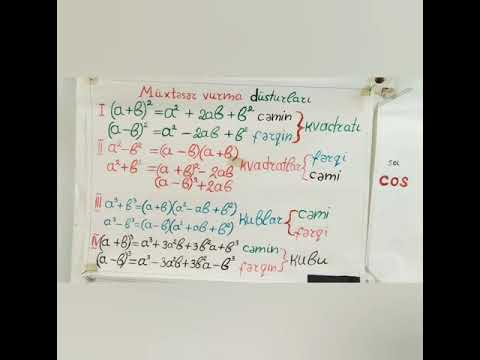 Müxtəsər vurma düsturları
I (a+b)² = a² + 2ab + b² cəmin
(a-b)² = a² - 2ab + b² fərqin } kvadratı
II a² - b² = (a-b)(a+b)
a² + b² = (a+b)² - 2ab
(a-b)² + 2ab
kvadratlar { fərqi
cəmi
III a³+b³=(a+b)(a²-ab+b²)
a³-b³=(a-b)(a²+ab+b²)
kublar { cəmi
fərqi
IV (a+b)³=a³+3a²b+3b²a+b³ cəmin
(a-b)³=a³-3a²b+3b²a-b³ fərqin } kubu
cos